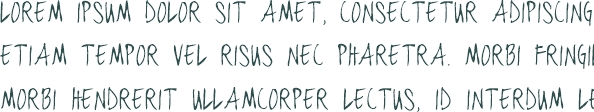 LOREM IPSUM DOLOR SIT AMET, CONSECTETUR ADIPISCING
ETIAM TEMPOR VEL RISUS NEC PHARETRA. MORBI FRINGIL
MORBI HENDRERIT ULLAMCORPER LECTUS, ID INTERDUM LE